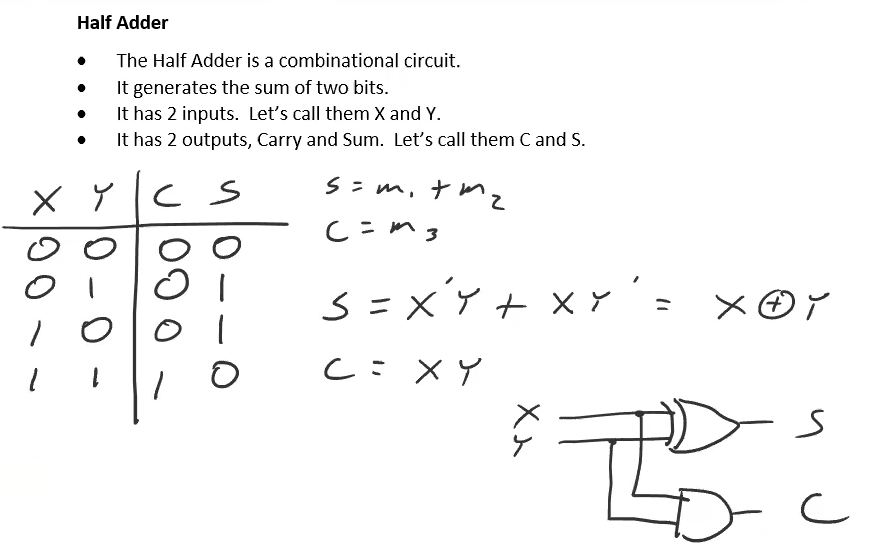 Half Adder
• The Half Adder is a combinational circuit.
• It generates the sum of two bits.
• It has 2 inputs.  Let’s call them X and Y.
• It has 2 outputs, Carry and Sum.  Let’s call them C and S.
X Y C S
0 0 0 0
0 1 0 1
1 0 0 1
1 1 1 0
S = m₁ + m₂
C = m₃
S = X'Y + XY' = X⊕Y
C = XY
X
Y
S
C